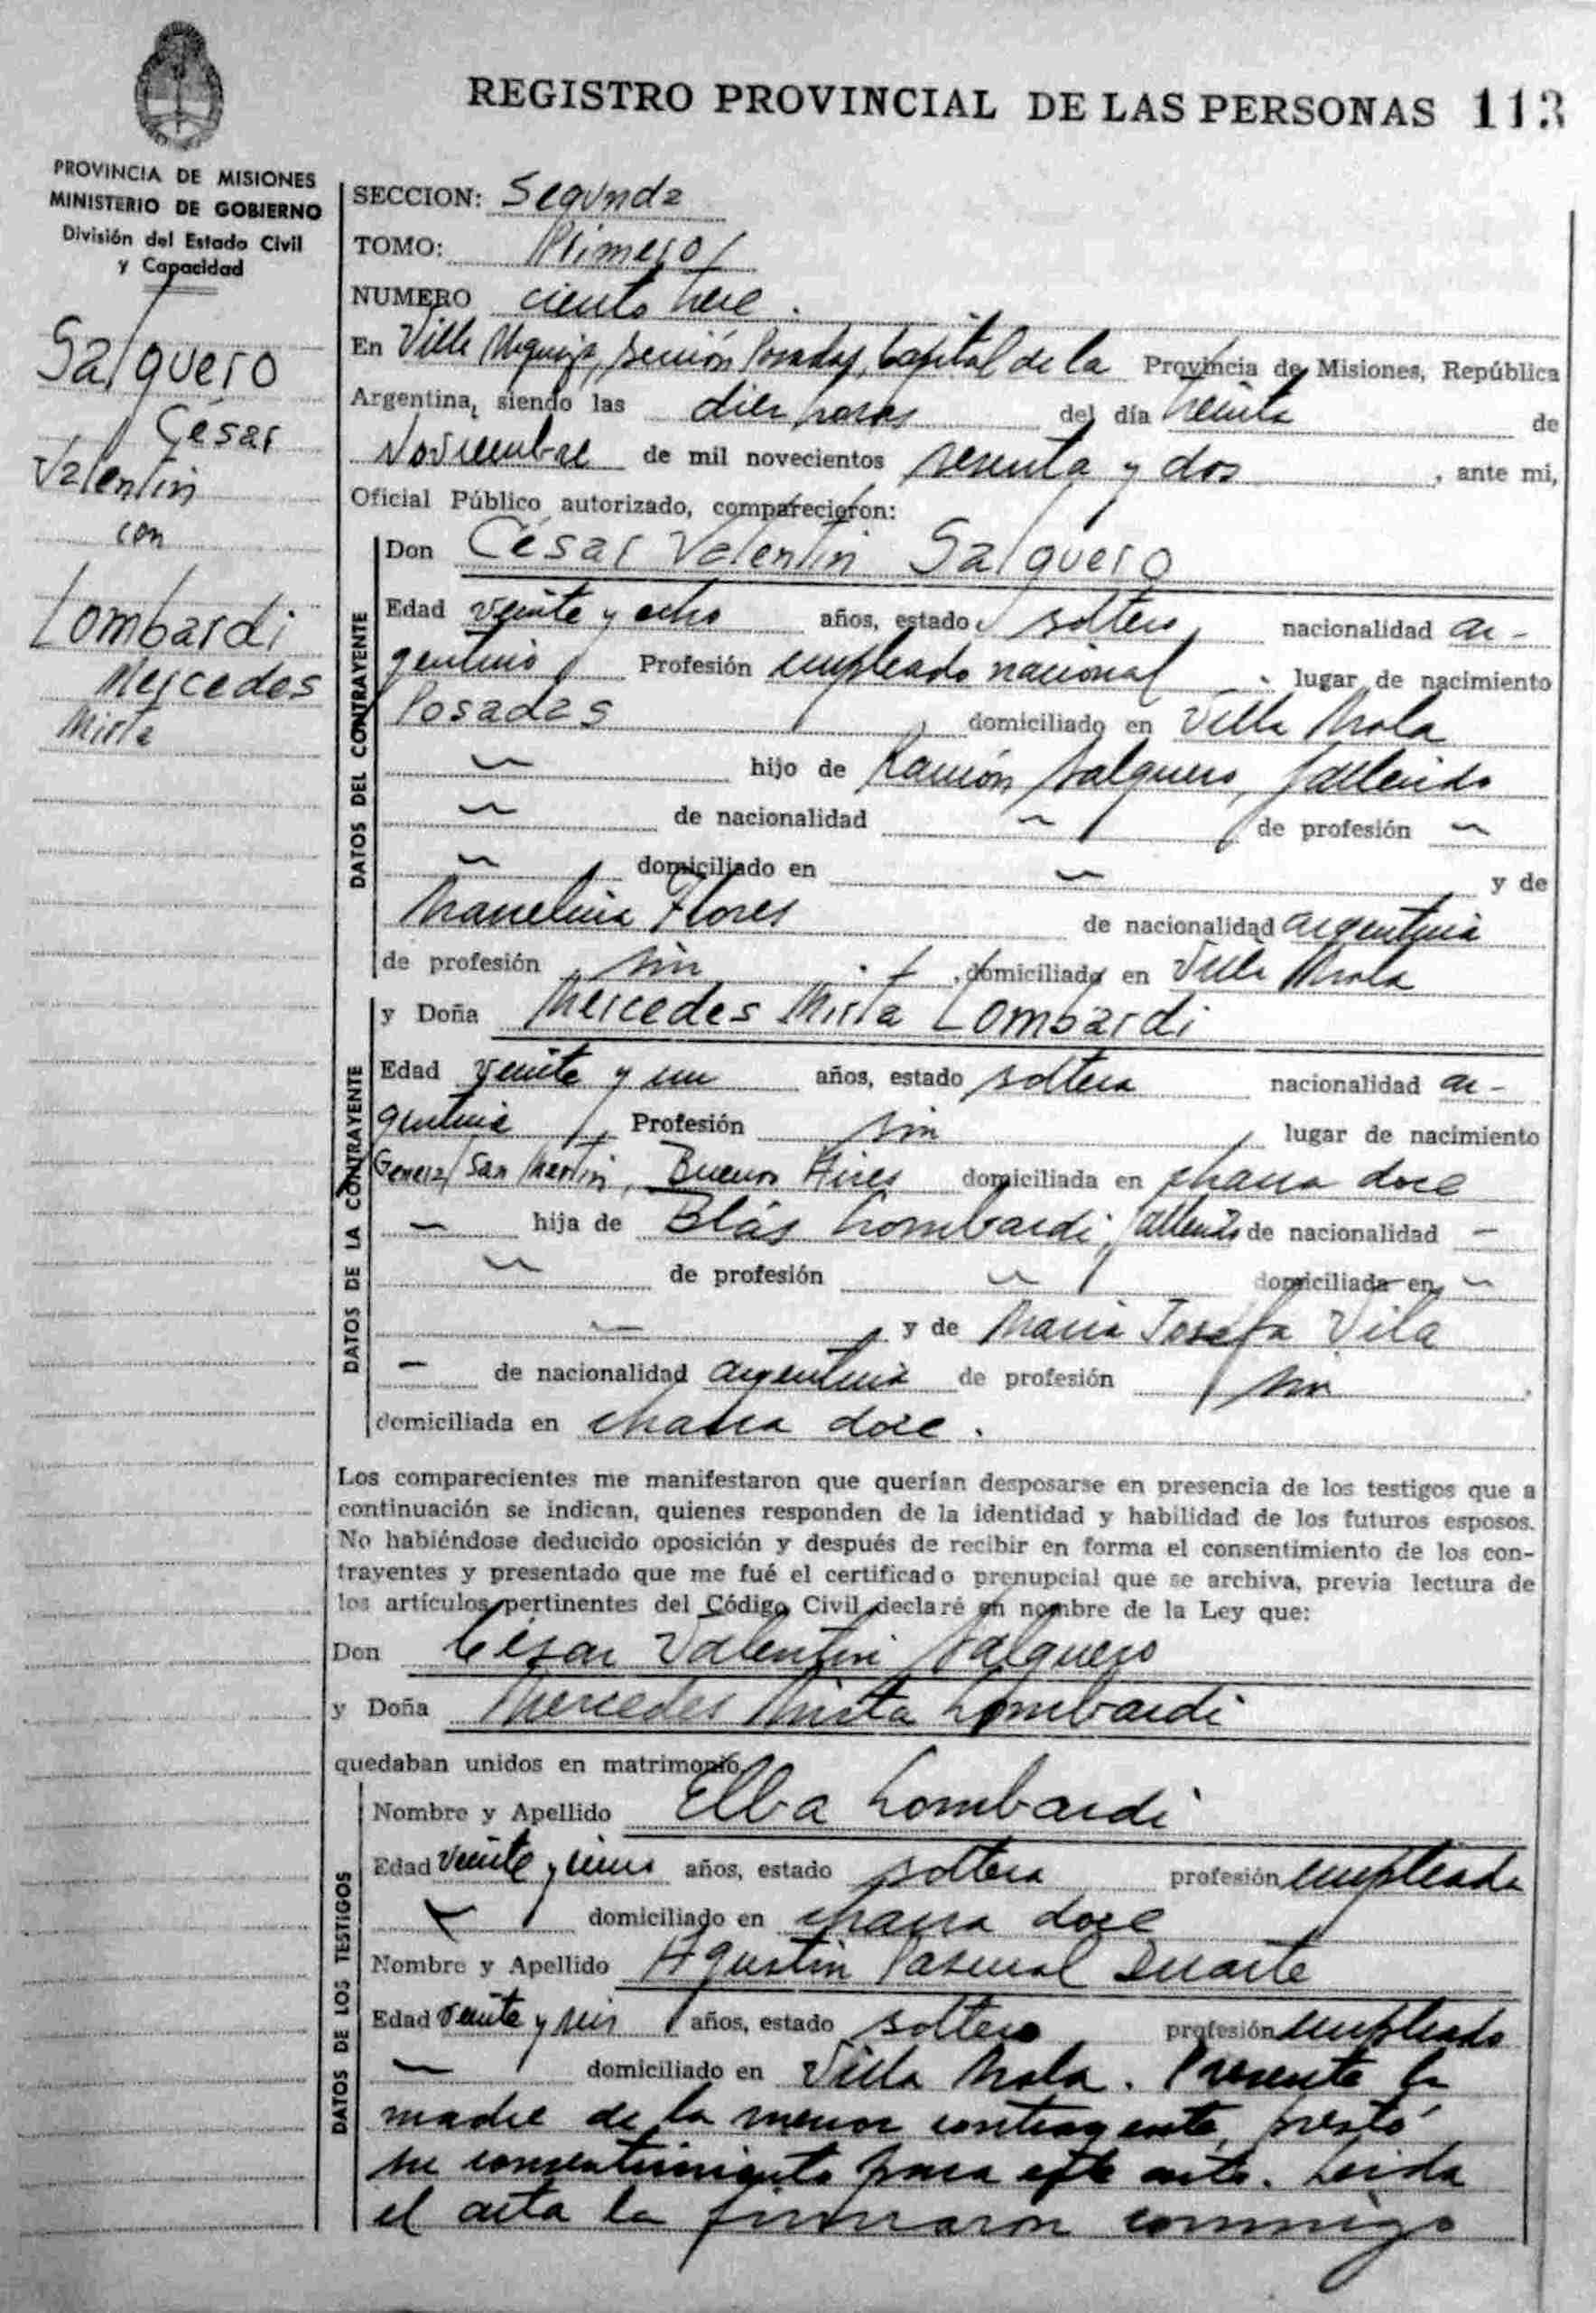 REGISTRO PROVINCIAL DE LAS PERSONAS 113
PROVINCIA DE MISIONES
MINISTERIO DE GOBIERNO
División del Estado Civil
y Capacidad
Salguero
César
Valentín
con
Lombardi
Mercedes
Mirta
SECCION: Segunda
TOMO: Primero
NUMERO ciento trece.
En Villa Urquiza, sección Posadas, Capital de la Provincia de Misiones, República
Argentina, siendo las diez horas del día treinta de
Noviembre de mil novecientos sesenta y dos, ante mi,
Oficial Público autorizado, comparecieron:
DATOS DEL CONTRAYENTE
Don César Valentín Salguero
Edad veinte y ocho años, estado soltero nacionalidad ar-
gentino Profesión empleado nacional. lugar de nacimiento
Posadas, domiciliado en Villa Mola
hijo de Ramón Salguero, fallecido
de nacionalidad de profesión
domiciliado en y de
Marcelina Flores de nacionalidad argentina
de profesión sin, domiciliada en Villa Mola
DATOS DE LA CONTRAYENTE
y Doña Mercedes Mirta Lombardi
Edad veinte y un años, estado soltera nacionalidad ar-
gentina Profesión sin lugar de nacimiento
General San Martín, Buenos Aires domiciliada en chacra doce
hija de Blás Lombardi, fallecido de nacionalidad
de profesión domiciliada en
y de María Josefa Vila
de nacionalidad argentina de profesión sin
domiciliada en chacra doce.
Los comparecientes me manifestaron que querían desposarse en presencia de los testigos que a
continuación se indican, quienes responden de la identidad y habilidad de los futuros esposos.
No habiéndose deducido oposición y después de recibir en forma el consentimiento de los con-
trayentes y presentado que me fué el certificado prenupcial que se archiva, previa lectura de
los artículos pertinentes del Código Civil declaré en nombre de la Ley que:
Don César Valentín Salguero
y Doña Mercedes Mirta Lombardi
quedaban unidos en matrimonio.
DATOS DE LOS TESTIGOS
Nombre y Apellido Elba Lombardi
Edad veinte y cinco años, estado soltera profesión empleada
domiciliado en chacra doce
Nombre y Apellido Agustín Pascual Duarte
Edad veinte y seis años, estado soltero profesión empleado
domiciliado en Villa Mola. Presente la
madre de la menor contrayente, prestó
su consentimiento para este acto. Leida
el acta la firmaron conmigo